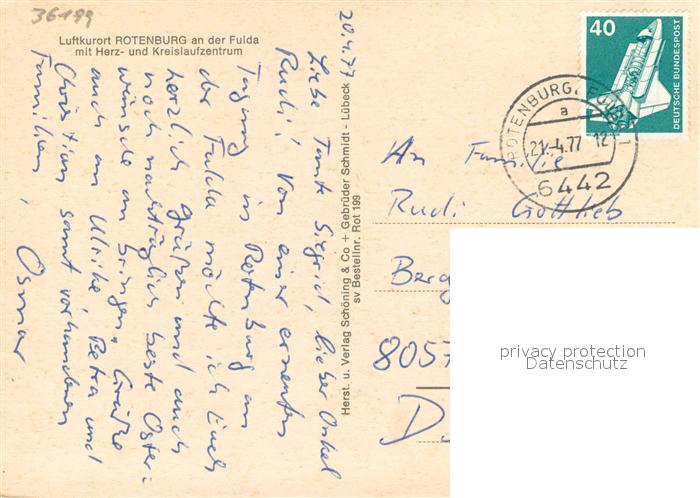 36199
Luftkurort ROTENBURG an der Fulda
mit Herz- und Kreislaufzentrum
20.4.77
Liebe Tante Sigrid, lieber Onkel
Rudi! Von einer erneuten
Tagung in Rotenburg an
der Fulda möchte ich Euch
herzlich grüßen und auch
noch nachträglich beste Oster-
wünsche an bringen. Grüße
auch an Ulrike, Petra und
Christian samt vorhandenen
Familien,
Osmar
Herst. u. Verlag Schöning & Co + Gebrüder Schmidt - Lübeck
sv Bestellnr. Rot 199
40
DEUTSCHE BUNDESPOST
ROTENBURG, FULDA 1
a
21.-4.77 12
6442
An Familie
Rudi Gottlieb
Berg
8057
D
privacy protection
Datenschutz